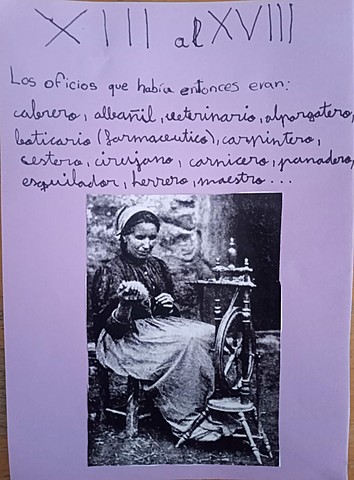 XIII al XVIII
Los oficios que había entonces eran:
cabrero, albañil, veterinario, alpargatero,
boticario (farmaceutico), carpintero,
cestero, cirujano, carnicero, panadero,
esquilador, herrero, maestro...